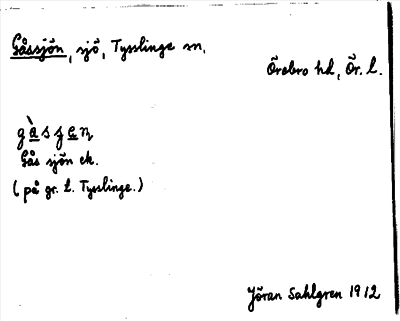 Gåssjön, sjö, Tysslinge sn,
Örebro hd, Ör. l.
gàsʃɵn
Gås sjön ek.
(på gr. t. Tysslinge.)
Jöran Sahlgren 1912